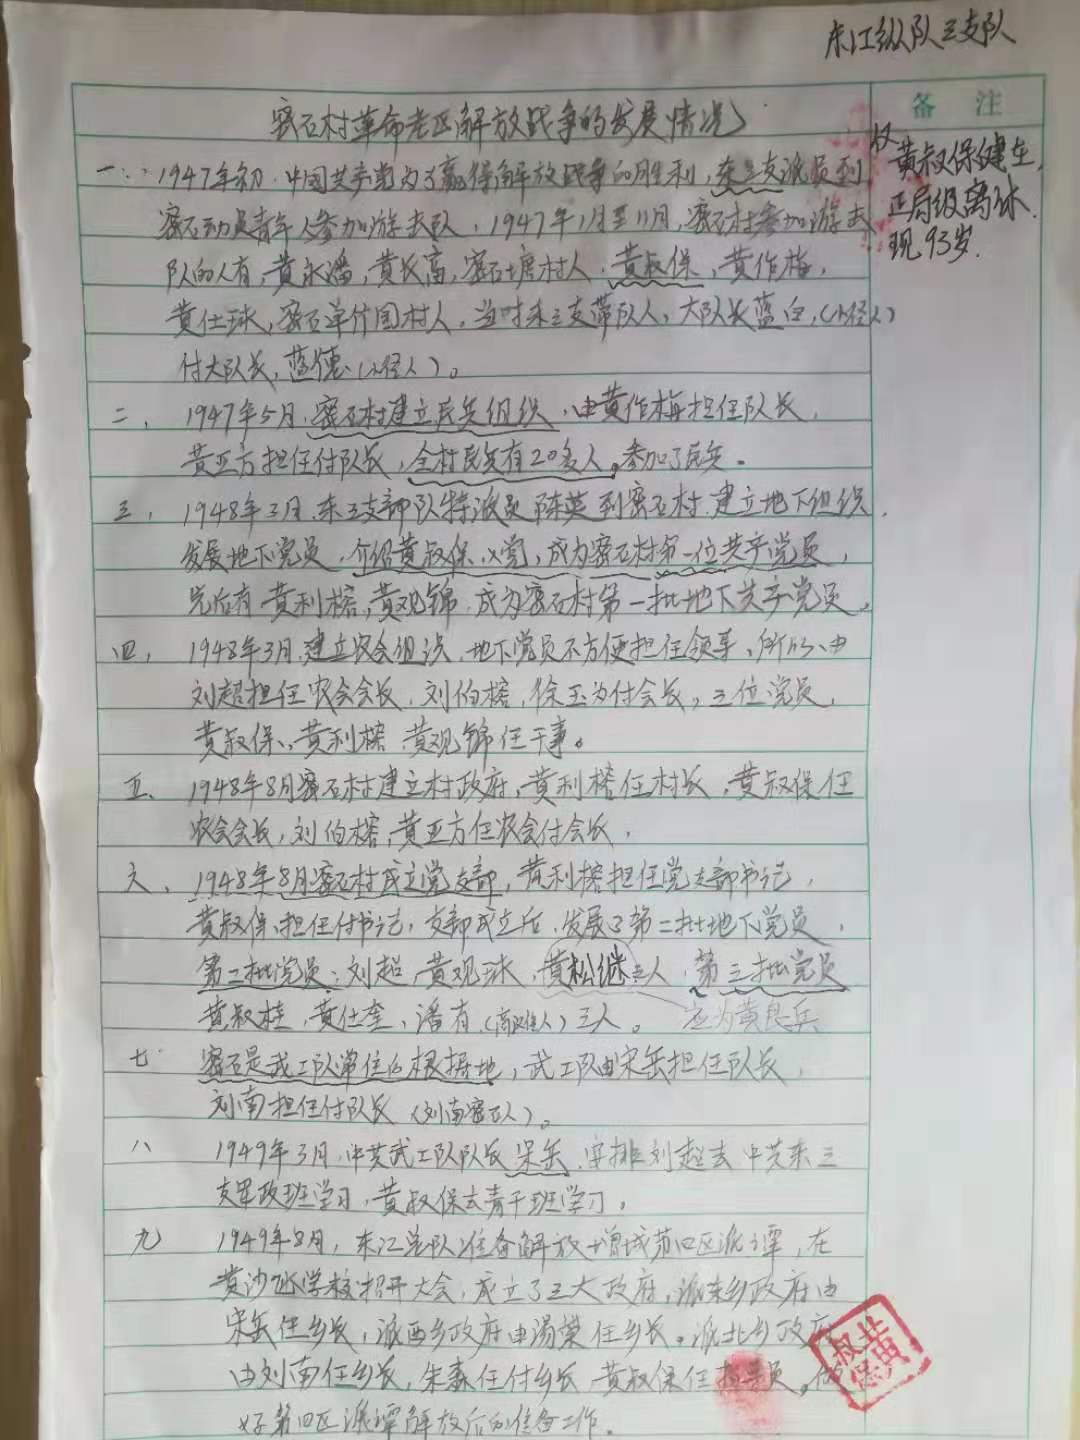 东江纵队三支队
备 注
密石村革命老区解放战争的发展情况
仅
黄叔保健在,
正局级离休.
现93岁.
一、1947年初,中国共产党为了赢得解放战争的胜利,东三支派员到
密石动员青年人参加游击队,1947年1月至11月,密石村参加游击
队的人有,黄永潘,黄长富,密石塘村人,黄叔保,黄作梅,
黄仕球,密石单竹园村人,当时东三支带队人,大队长蓝白,(小径人)
付大队长,蓝德(小径人)。
二、1947年5月,密石村建立民兵组织,由黄作梅担任队长,
黄亚方担任付队长,全村民兵有20多人。参加了民兵。
三,1948年3月,东三支部队特派员陈英到密石村,建立地下组织,
发展地下党员,介绍黄叔保入党,成为密石村第一位共产党员,
先后有黄利榕,黄观锦,成为密石村第一批地下共产党员。
四,1948年3月,建立农会组织,地下党员不方便担任领导,所以由
刘超担任农会会长,刘伯榕,徐玉为付会长,三位党员,
黄叔保,黄利榕,黄观锦任干事。
五、1948年8月密石村建立村政府,黄利榕任村长,黄叔保任
农会会长,刘伯榕,黄亚方任农会付会长,
六、1948年8月密石村成立党支部,黄利榕担任党支部书记,
黄叔保担任付书记,支部成立后,发展了第二批地下党员,
第二批党员:刘超,黄观球,黄松继三人,第三批党员
黄叔桂,黄仕奎,潘有三人。应为黄良兵
七 密石是武工队常住的根据地,武工队由宋岳担任队长,
刘南担任付队长(刘南密石人)。
八 1949年3月,中共武工队队长宋岳,安排刘超去中共东三
支军政班学习,黄叔保去青干班学习,
九 1949年8月,东江总队准备解放增城第四区派潭,在
黄沙氹学校招开大会,成立了三大政府,派东乡政府由
宋岳任乡长,派西乡政府由汤荣任乡长。派北乡政府
由刘南任乡长,朱森任付乡长,黄叔保任指导员。做
好第四区派潭解放后的准备工作.
黄叔保